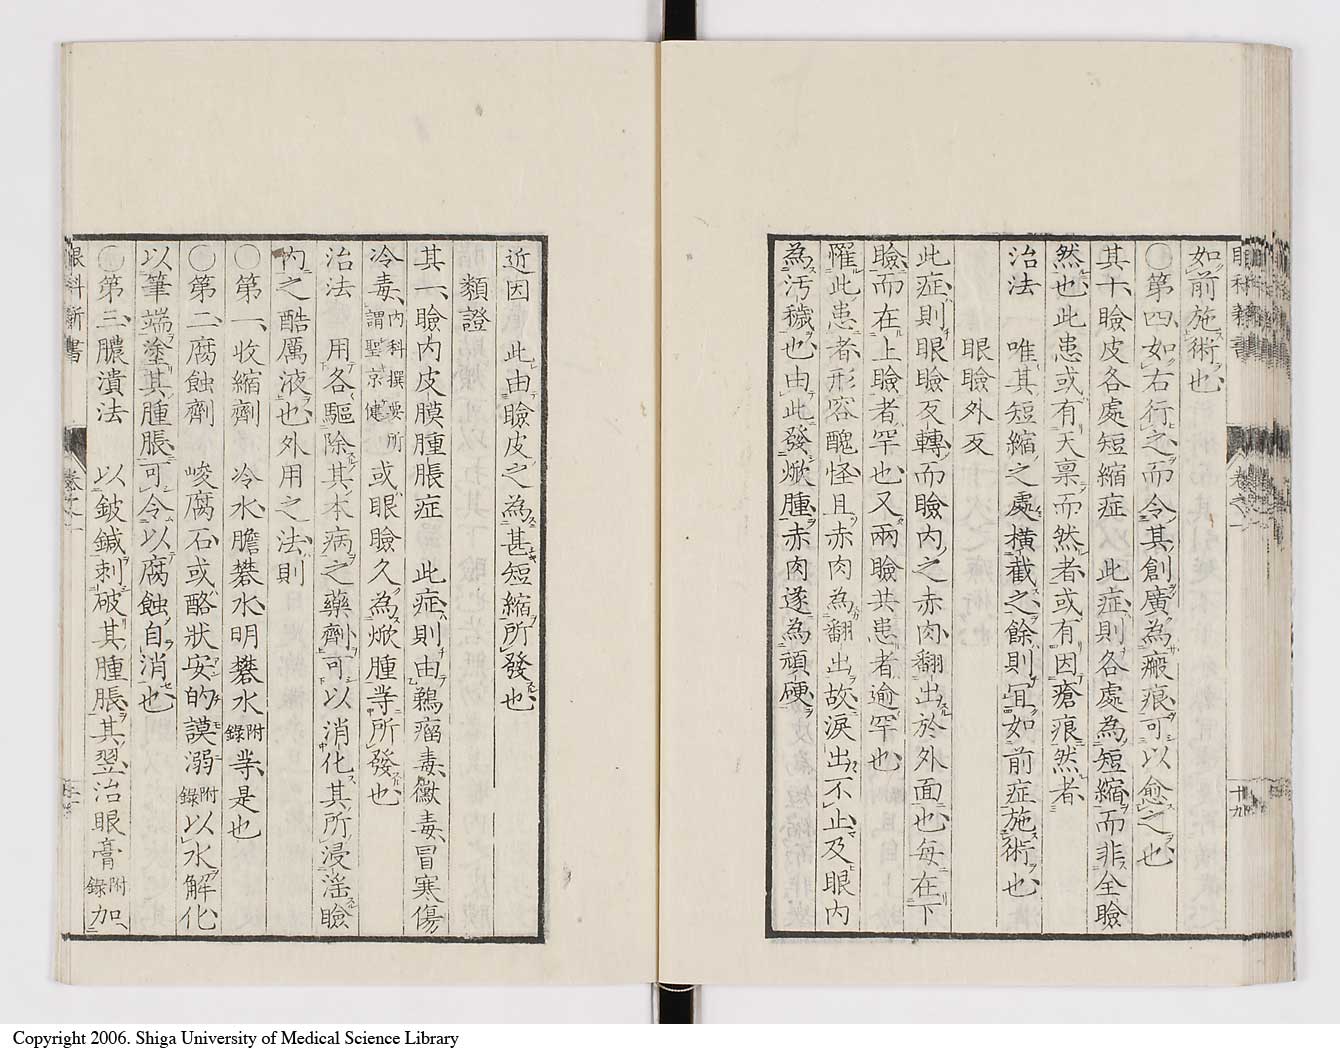 如前施術也
○第四、如右行之而令其創廣為瘢痕可以愈之也
其十、瞼皮各處短縮症　此症則各處為短縮而非全瞼
然也此患或有天稟而然者或有因瘡痕然者
治法　唯其短縮之處橫截之餘則宜如前症施術也
眼瞼外反
此症則眼瞼反轉而瞼內之赤肉翻出於外面也每在下
瞼而在上瞼者罕也又兩瞼共患者逾罕也
罹此患者形容醜怪且赤肉為翻出故淚出不止及眼內
為汚穢也由此發焮腫赤肉遂為頑硬
近因　此由瞼皮之為甚短縮所發也
類證
其一、瞼內皮膜腫脹症　此症則由鵝瘤毒黴毒冒寒傷
冷毒、內科撰要所謂聖京健或眼瞼久為焮腫等所發也
治法　用各驅除其本病之藥劑可以消化其所浸淫瞼
內之酷厲液也外用之法則
○第一、收縮劑　冷水膽礬水明礬水附錄等是也
○第二、腐蝕劑　峻腐石或酪狀安的謨溺附錄以水解化
以筆端塗其腫脹可令以腐蝕自消也
○第三、膿潰法　以鈹鍼刺破其腫脹其翌治眼膏附錄加
眼科新書
十九
Copyright 2006. Shiga University of Medical Science Library